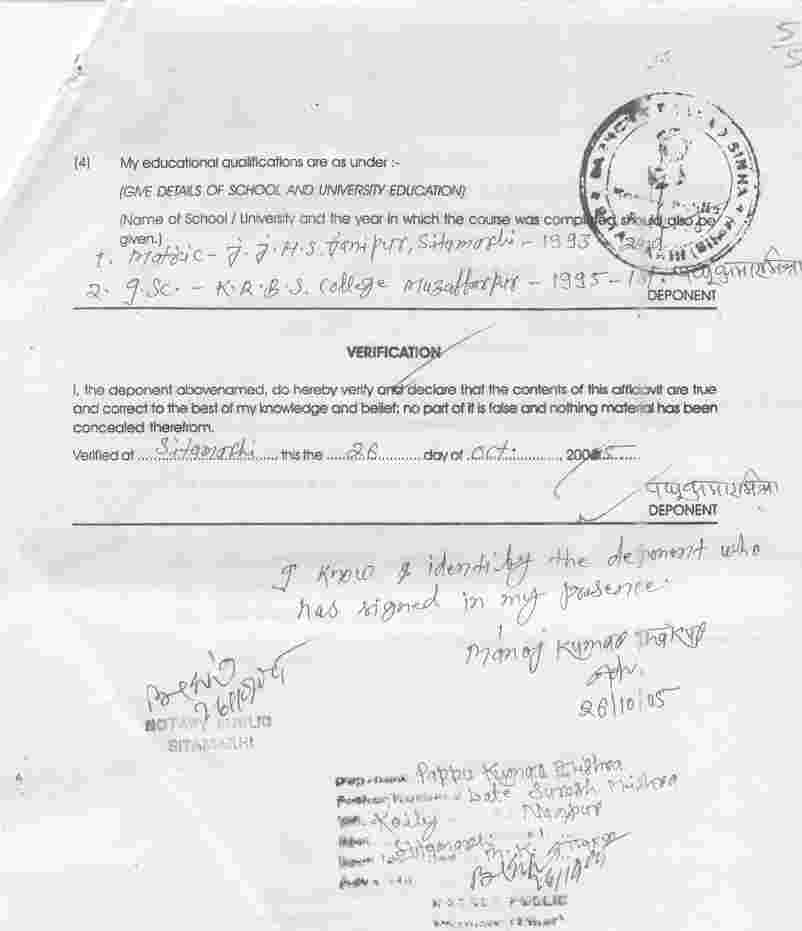 5/5
(4) My educational qualifications are as under :-
(GIVE DETAILS OF SCHOOL AND UNIVERSITY EDUCATION)
(Name of School / University and the year in which the course was completed should also be
given.)
1. Matric - J. J. H. S. Janipur, Sitamarhi - 1993 - 2nd
2. I.Sc. - K. R. B. S. College Muzaffarpur - 1995 - 1st. पप्पु कुमार मिश्रा
DEPONENT
VERIFICATION
I, the deponent abovenamed, do hereby verify and declare that the contents of this affidavit are true
and correct to the best of my knowledge and belief; no part of it is false and nothing material has been
concealed therefrom.
Verified at ....Sitamarhi...., this the ....26.......... day of .Oct............., 2005......
पप्पु कुमार मिश्रा
DEPONENT
I know & identify the deponent who
has signed in my presence.
Manoj Kumar Thakur
Adv.
26/10/05
26/10/05
NOTARY PUBLIC
SITAMARHI
Pappu Kumar Mishra
Late Suresh Mishra
Koily
Nanpur
Sitamarhi
M. K. Thakur
26/10/05
NOTARY PUBLIC